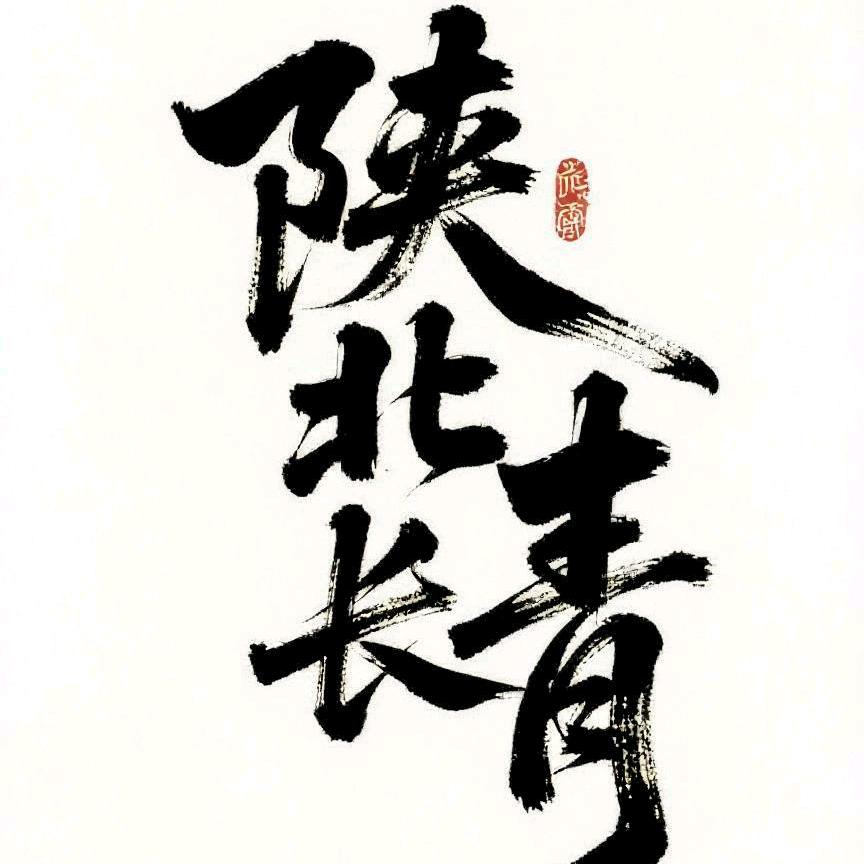 陕北长青